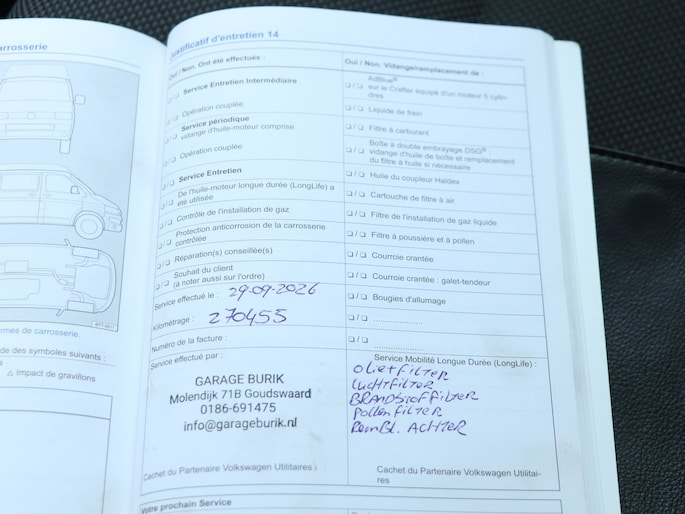 arrosserie
Justificatif d'entretien 14
Oui / Non. Ont été effectués :
❏ / ❏ Service Entretien Intermédiaire
❏ / ❏ Opération couplée
Service périodique
❏ / ❏ vidange d'huile-moteur comprise
❏ / ❏ Opération couplée
❏ / ❏ Service Entretien
De l'huile-moteur longue durée (LongLife) a
❏ / ❏ été utilisée
❏ / ❏ Contrôle de l'installation de gaz
Protection anticorrosion de la carrosserie
❏ / ❏ contrôlée
❏ / ❏ Réparation(s) conseillée(s)
Souhait du client
❏ / ❏ (à noter aussi sur l'ordre)
Service effectué le : 29-09-2026
Kilométrage : 270455
Numéro de la facture :
Service effectué par :
GARAGE BURIK
Molendijk 71B Goudswaard
0186-691475
info@garageburik.nl
Cachet du Partenaire Volkswagen Utilitaires
Oui / Non. Vidange/remplacement de :
AdBlue®
❏ / ❏ sur le Crafter équipé d'un moteur 5 cylin-
dres
❏ / ❏ Liquide de frein
❏ / ❏ Filtre à carburant
Boîte à double embrayage DSG® :
❏ / ❏ vidange d'huile de boîte et remplacement
du filtre à huile si nécessaire
❏ / ❏ Huile du coupleur Haldex
❏ / ❏ Cartouche de filtre à air
❏ / ❏ Filtre de l'installation de gaz liquide
❏ / ❏ Filtre à poussière et à pollen
❏ / ❏ Courroie crantée
❏ / ❏ Courroie crantée : galet-tendeur
❏ / ❏ Bougies d'allumage
❏ / ❏ ....................
❏ / ❏ ....................
Service Mobilité Longue Durée (LongLife) :
OlieTfilTER
luchTfilTER
BRANDstoffilTER
PollenfilTER
RemBl. ACHTER
Cachet du Partenaire Volkswagen Utilitai-
res
Votre prochain Service
rmes de carrosserie.
de des symboles suivants :
⚠ Impact de gravillons